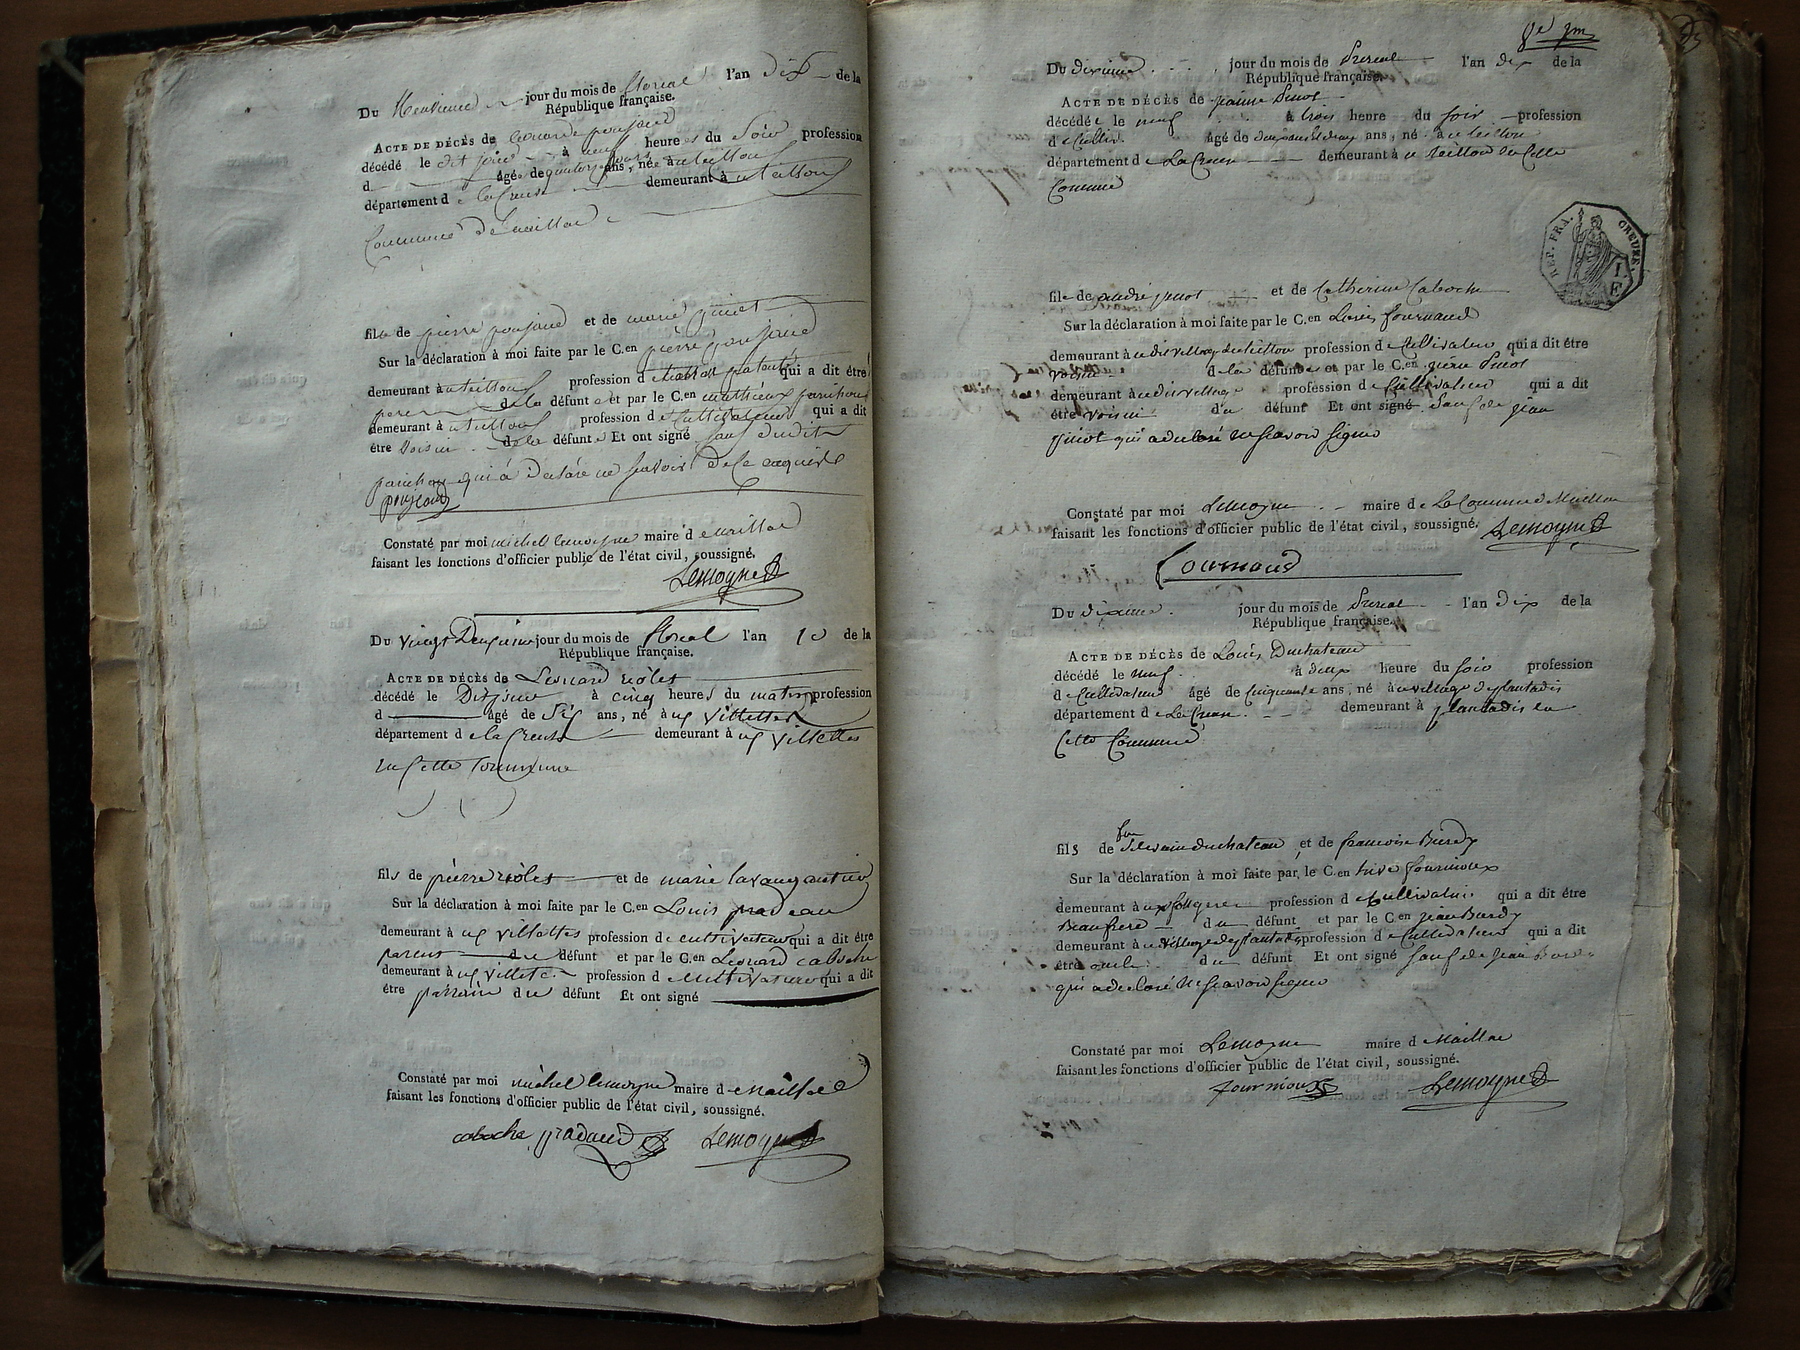 Du neuvieme jour du mois de floreal l'an dix de la
République française.
ACTE DE DÉCÈS de Leonarde poujaud
décédé le dit jour à neuf heures du Soir profession
d âgé de quatorze jours ans, née à uteillou
département d e la Creuse demeurant à uteilloux
Commune de maillac
fils de pierre poujaud et de marie pinet
Sur la déclaration à moi faite par le C.en pierre poujaud
demeurant à uteilloux profession d qui a dit être
pere de la défunte et par le C.en mathieux parichou
demeurant à uteilloux profession d e Cultivateur qui a dit
être Voisin de la défunte Et ont signé sauf dudit
parichou qui a declaré ne savoir de ce enquis
poujeaud
Constaté par moi michel lemoyne maire d emaillac
faisant les fonctions d'officier public de l'état civil, soussigné.
Lemoyne
Du vingt Deuxieme jour du mois de floreal l'an 10 de la
République française.
ACTE DE DÉCÈS de Leonard riolet
décédé le Dixieme à cinq heures du matin profession
d âgé de Six ans, né à ux villettes
département d e la Creuse demeurant à ux villettes
en Cette Commune
fils de pierre riolet et de marie
Sur la déclaration à moi faite par le C.en Louis pradeau
demeurant à ux villettes profession d e cultivateur qui a dit être
parent du défunt et par le C.en Leonard caboche
demeurant à ux villete profession d e cultivateur qui a dit
être parrain du défunt Et ont signé
Constaté par moi michel lemoyne maire d e maillac
faisant les fonctions d'officier public de l'état civil, soussigné.
caboche pradaud Lemoyne
Du dixieme jour du mois de Prereal l'an dix de la
République française.
ACTE DE DÉCÈS de jeanne Pinot
décédée le neuf à trois heure du soir profession
d âgé de ans, né à uteillou
département d e La Creuse demeurant à u teillou en Cette
Commune
REP. FRA. CREUSE
fille de andré pinot et de Catherine Caboche
Sur la déclaration à moi faite par le C.en Louis fournaud
demeurant à udit village duteillou profession d e Cultivateur qui a dit être
voisin de la défunte et par le C.en Pinot
demeurant à udit village profession d e Cultivateur qui a dit
être voisin du défunt Et ont signé Sauf de jean
pinot qui a declaré ne scavoir signe
Constaté par moi Lemoyne maire d e La Commune d Maillac
faisant les fonctions d'officier public de l'état civil, soussigné. Lemoyne
fournaud
Du dixieme jour du mois de Prereal l'an dix de la
République française.
ACTE DE DÉCÈS de Louis Duchateau
décédé le neuf à deux heure du soir profession
d e Cultivateur âgé de Cinquante ans, né à u village deplantadis
département d e La Creuse demeurant à plantadis en
Cette Commune
fils de feu Silvain duchateau et de francoise Burdy
Sur la déclaration à moi faite par le C.en fournioux
demeurant à profession d e Cultivateur qui a dit être
Beaufrere du défunt et par le C.en jean Burdy
demeurant à u village deplantadis profession d e Cultivateur qui a dit
être oncle du défunt Et ont signé sauf de jean Burdy
qui a declaré ne scavoir signe
Constaté par moi Lemoyne maire d Maillac
faisant les fonctions d'officier public de l'état civil, soussigné.
fournioux Lemoyne